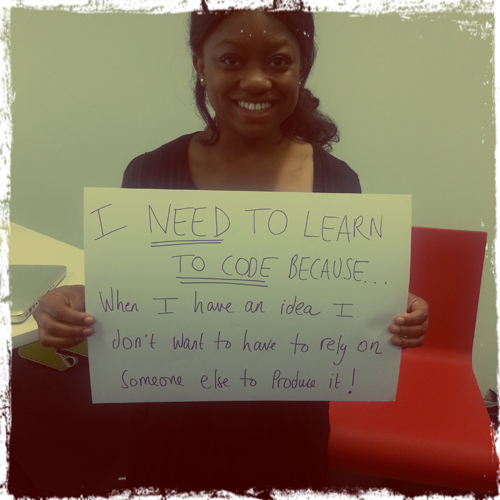 I NEED TO LEARN
TO CODE BECAUSE...
When I have an idea I
don't want to have to rely on
someone else to produce it!